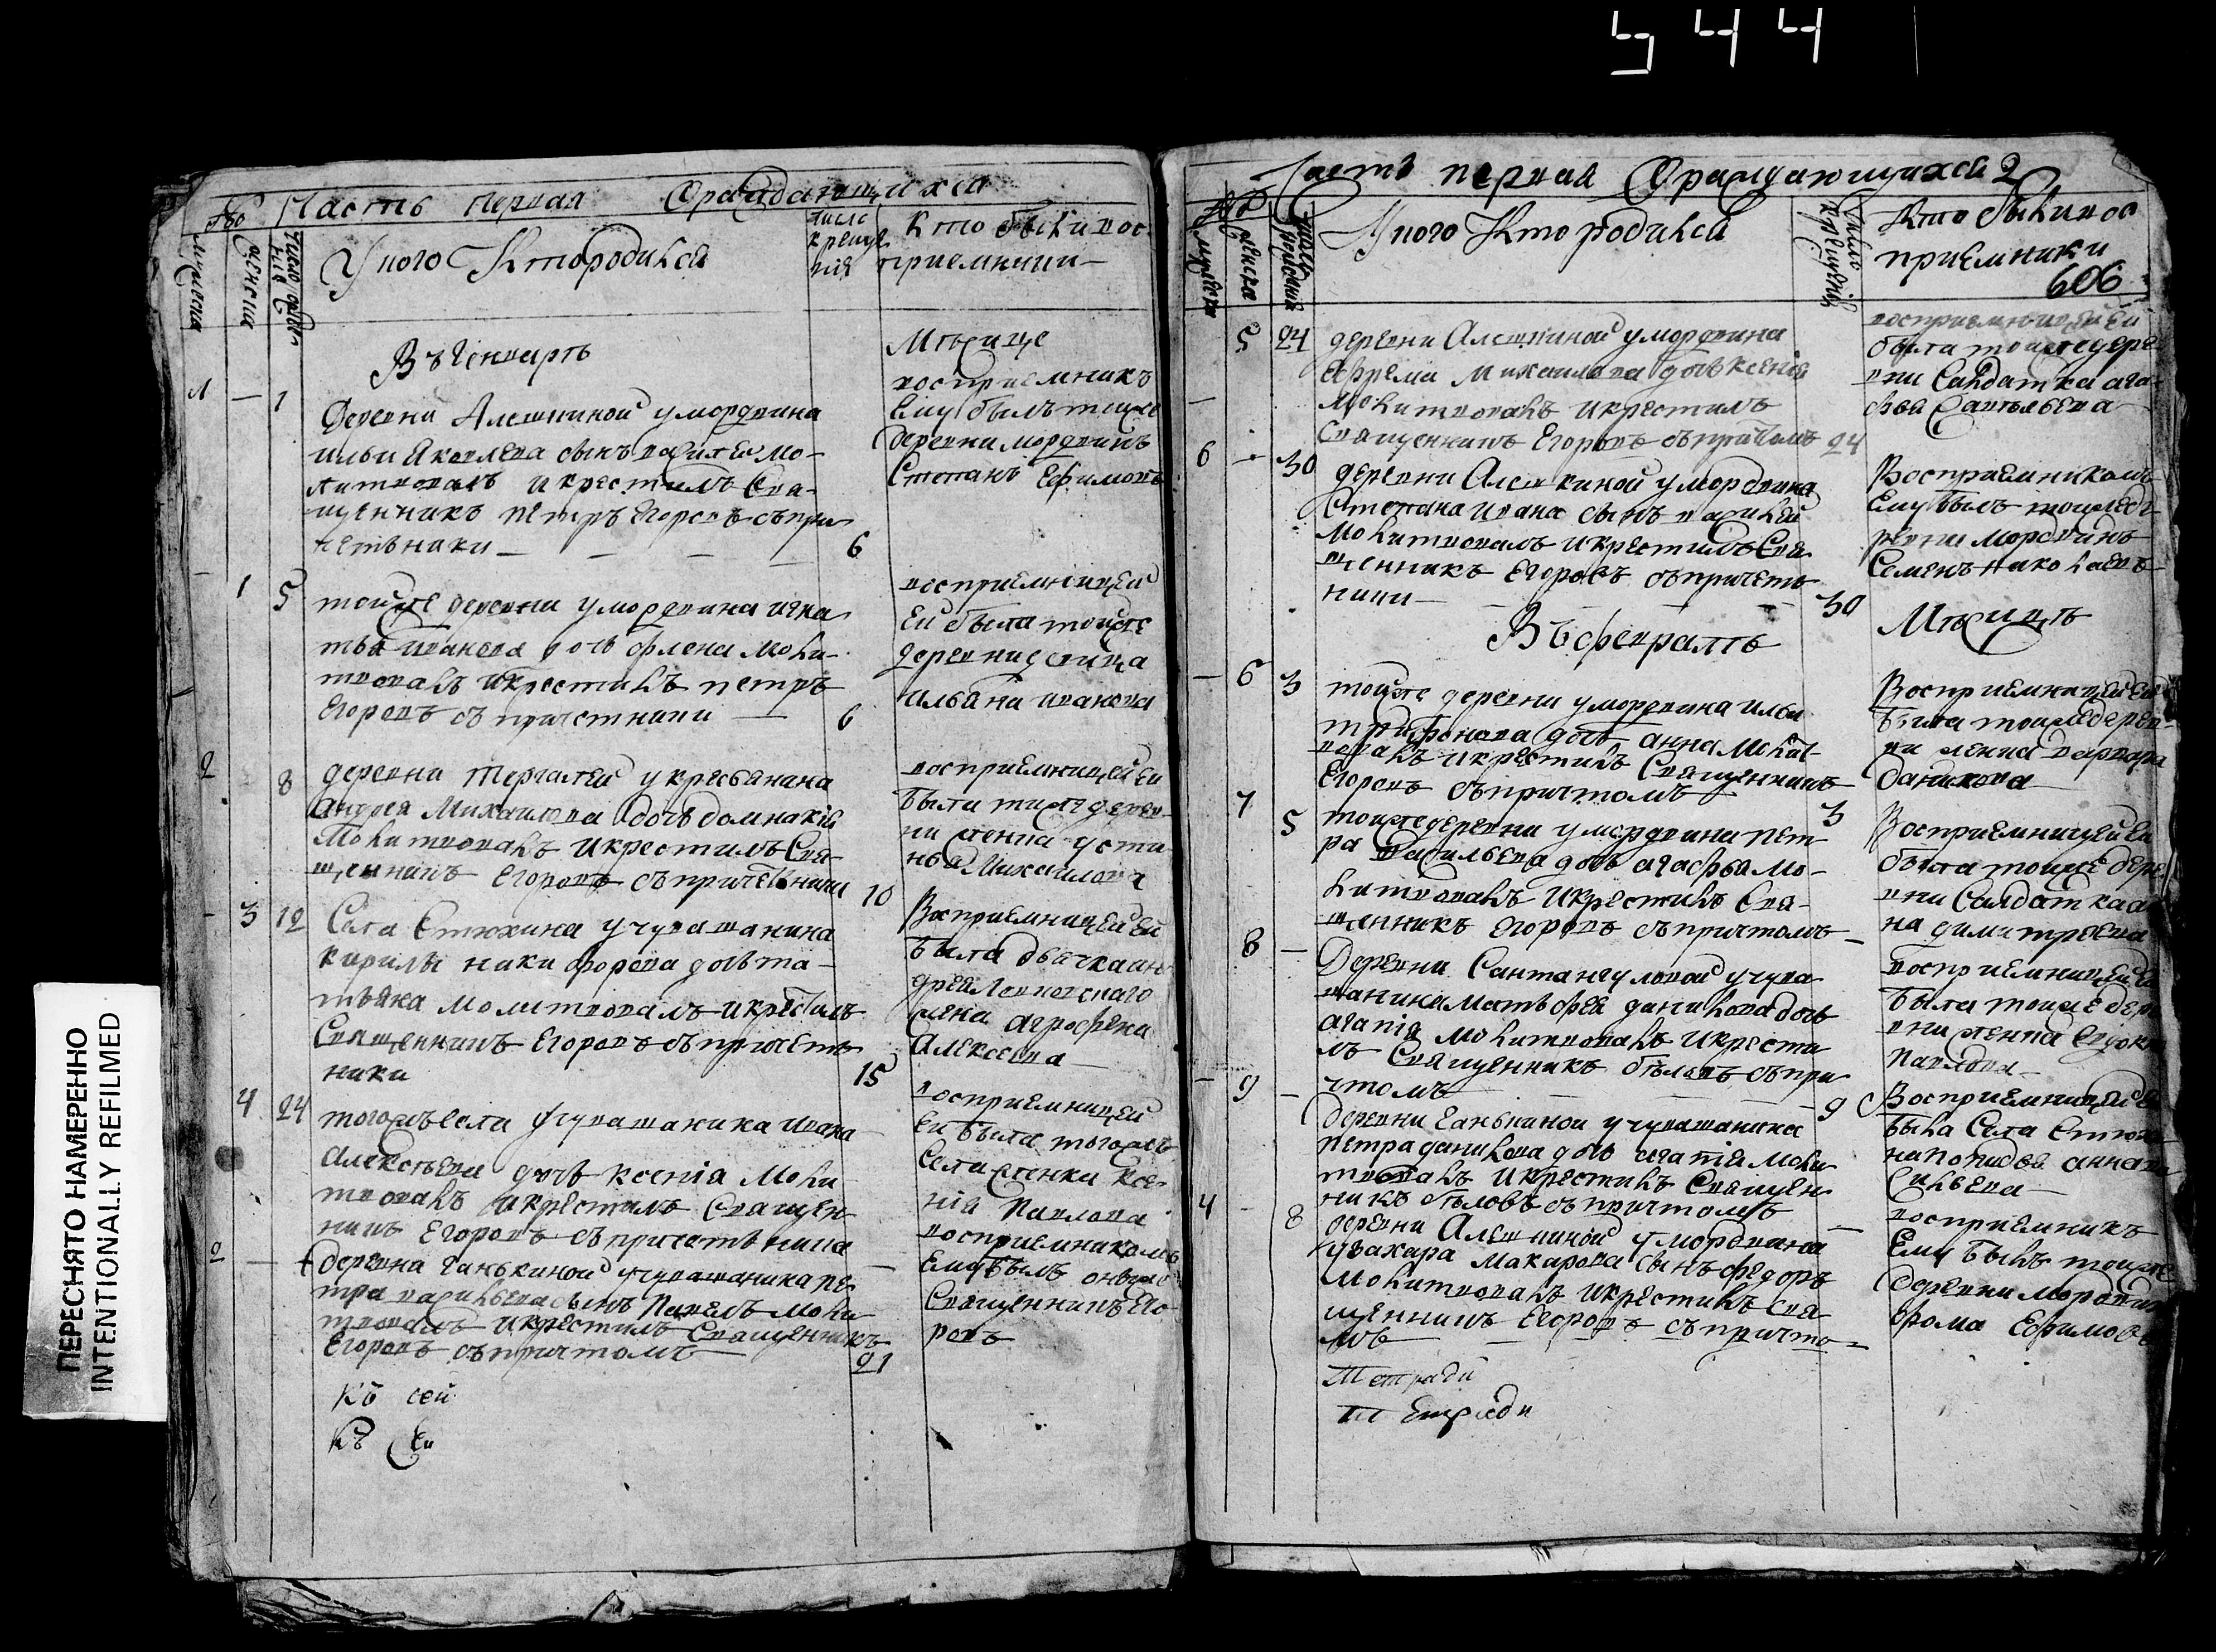 544
ПЕРЕСНЯТО НАМЕРЕННО
INTENTIONALLY REFILMED
Часть первая Ораждающихся
№
мужеска
женска
число
У ково Кто родился
число
креще
нія
Кто были вос
приемники
Въ Генваръ
Мѣсяце
1 — 1
Деревни Алешкиной у мордвина
ильи Яковлева сынъ василей мо-
литвовалъ и крестилъ Свя-
щенникъ петръ Егоровъ съ при
четьники — 6
восприемникъ
Ему былъ тойже
деревни мордвинъ
Степанъ Ефимовъ
1 5
тойже деревни у мордвина игна
тья иванова дочь Олена Моли-
твовалъ и крестилъ петръ
Егоровъ съ причетники — 6
восприемницей
Ей была тойже
деревни девица
ивановна
2 8
деревни у кресьянина
андрея Михаилова дочь домнакія
Молитвовалъ и крестилъ Свя-
щенникъ Егоровъ съ причетьники 10
восприемницей Ей
была тойже дерев-
ни женка усти
нья Михаилова
3 12
Села Стюхина у чувашанина
кирилы никифорова дочь та-
тьяна молитвовалъ и крестилъ
Священникъ Егоровъ съ причеть
ники 15
Восприемницей Ей
была дьячка ан
дрея
жена агрофена
Алексеева —
4 24
тогожъ села у чувашанина ивана
Алексѣева дочь ксенія Моли
твовалъ и крестилъ Священ-
никъ Егоровъ съ причетьники
восприемницей
Ей была тогожъ
села женка Ксе-
нія Павлова
2 —
деревна Ганькиной у чувашанина пе
тра васильева сынъ Павелъ моли-
твовалъ и крестилъ Священникъ
Егоровъ съ причтомъ 21
восприемникомъ
Ему былъ
Священникъ Его-
ровъ
Къ сей
Къ Сей
Часть первая Ораждающихся 2
№
У ково Кто родился
число
крещенія
Кто были вос
приемники
606
5 24
деревни Алешкиной у мордвина
Ефрема Михаилова дочь ксенія
молитвовалъ и крестилъ
Священникъ Егоровъ съ причтомъ 24
восприемницей Ей
была тойже дере
вни Салдатка ага-
фья Савельева
6 — 30
деревни Алешкиной у мордвина
Степана ивана сынъ василей
Молитвовалъ и крестилъ Свя
щенникъ Егоровъ съ причеть
ники — 30
Восприемникомъ
Ему былъ тойжеде
ревни мордвинъ
Семенъ николаевъ
Въ февралѣ
Мѣсяцѣ
6 3
тойже деревни у мордвина ильи
трифонова дочь анна Молит-
вовалъ и крестилъ Священникъ
Егоровъ съ причтомъ 3
Восприемницей Ей
была тойже дерев-
ни женка варвара
данилова
7 5
тойже деревни у мордвина пет-
ра васильева дочь агафья Мо-
литвовалъ и крестилъ Свя-
щенникъ Егоровъ съ причтомъ —
Восприемницей Ей
была тойже дере
вни Салдатка
на димитреева
8 —
Деревни Сантангуловой у чува
шанина Матьфея данилова дочь
агапія Молитвовалъ и крести
лъ Священникъ бѣловъ съ при
чтомъ — 9
восприемницей Ей
была тойже дере
вни женка Евдок
Павлова —
9 —
деревни Ганькиной у чувашанина
петра данилова дочь агапія моли
твовалъ и крестилъ Священ
никъ бѣловъ съ причтомъ —
Восприемницей Ей
была Села Стюхи
на попадья анна
Сильева
4 8
деревни Алешкиной у мордвина
у захара Макарова сынъ федоръ
Молитвовалъ и крестилъ Свя-
щенникъ Егоровъ съ причто-
мъ
восприемникъ
Ему былъ тойже
деревни мордвин
Фома Ефимовъ
Тетради
Тетради